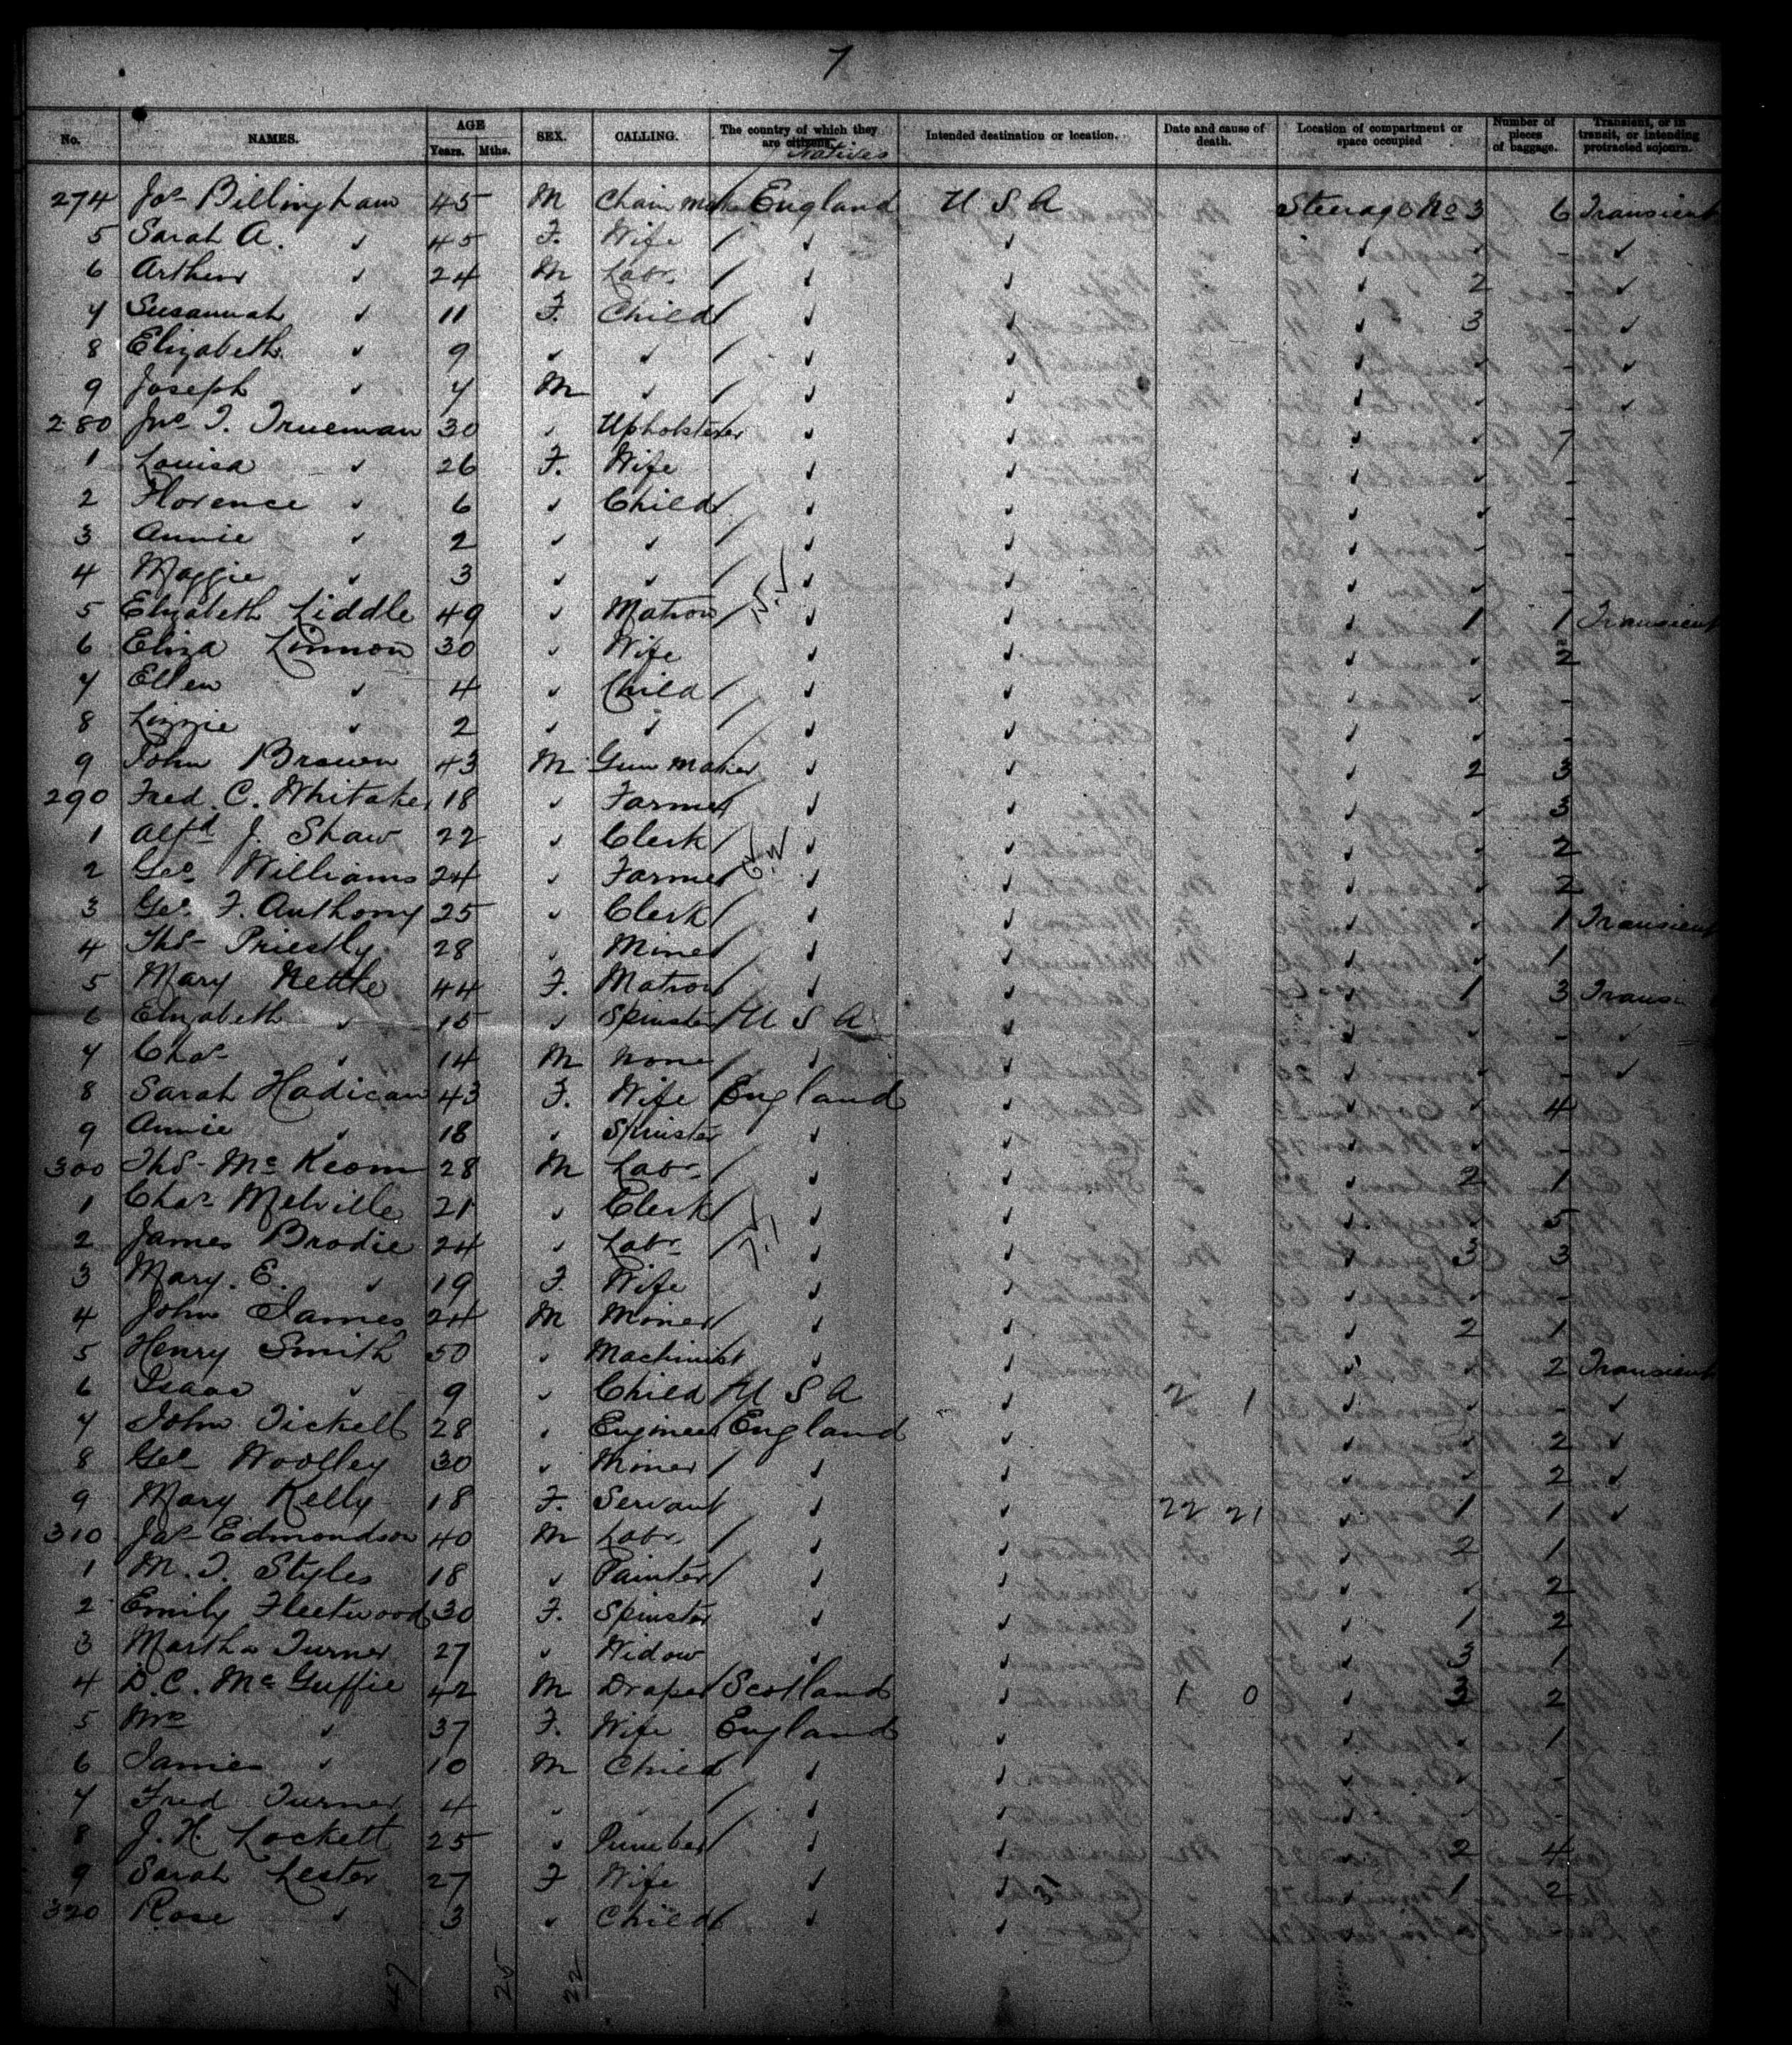 7
No. NAMES. AGE Years. Mths. SEX. CALLING. The country of which they are citizens. Natives Intended destination or location. Date and cause of death. Location of compartment or space occupied Number of pieces of baggage. Transient, or in transit, or intending protracted sojourn.
274 Jos Billingham 45 M Chain Maker England U S A Steerage No 3 6 Transient
5 Sarah A. ✓ 45 F. Wife / ✓ ✓ ✓ ✓ - ✓
6 Arthur ✓ 24 M Labr / ✓ ✓ ✓ 2 - ✓
7 Susannah ✓ 11 F. Child / ✓ ✓ ✓ 3 - ✓
8 Elizabeth ✓ 9 ✓ ✓ / ✓ ✓ ✓ ✓ - ✓
9 Joseph ✓ 7 M ✓ / ✓ ✓ ✓ ✓ - ✓
280 Jno T. Trueman 30 ✓ Upholsterer ✓ ✓ ✓ ✓ 7
1 Louisa ✓ 26 F. Wife ✓ ✓ ✓ ✓ -
2 Florence ✓ 6 ✓ Child / ✓ ✓ ✓ ✓ -
3 Annie ✓ 2 ✓ ✓ / ✓ ✓ ✓ ✓ -
4 Maggie ✓ 3 ✓ ✓ / ✓ ✓ ✓ ✓ -
5 Elizabeth Liddle 49 ✓ Matron / ✓ ✓ ✓ 1 1 Transient
6 Eliza Linnon 30 ✓ Wife ✓ ✓ ✓ ✓ 2
7 Ellen ✓ 4 ✓ Child / ✓ ✓ ✓ ✓ -
8 Lizzie ✓ 2 ✓ ✓ / ✓ ✓ ✓ ✓ -
9 John Brown 43 M Gun Maker ✓ ✓ ✓ 2 3
290 Fred. C. Whitaker 18 ✓ Farmer / ✓ ✓ ✓ ✓ 3
1 Alfd J. Shaw 22 ✓ Clerk / ✓ ✓ ✓ ✓ 2
2 Geo Williams 24 ✓ Farmer ✓ ✓ ✓ ✓ 2
3 Geo. F. Anthony 25 ✓ Clerk / ✓ ✓ ✓ ✓ 1 Transient
4 Thos Priestly 28 ✓ Miner / ✓ ✓ ✓ ✓ 1
5 Mary Nettle 44 F. Matron / ✓ ✓ ✓ 1 3
6 Elizabeth ✓ 15 ✓ Spinster / U S A ✓ ✓ ✓ - ✓
7 Chas ✓ 14 M None / ✓ ✓ ✓ ✓ - ✓
8 Sarah Hadican 43 F. Wife England ✓ ✓ ✓ 4
9 Annie ✓ 18 ✓ Spinster ✓ ✓ ✓ ✓ -
300 Thos McKeom 28 M Labr / ✓ ✓ ✓ 2 1
1 Chas Melville 21 ✓ Clerk / ✓ ✓ ✓ ✓ 5
2 James Brodie 24 ✓ Labr / ✓ ✓ ✓ 3 3
3 Mary. E. ✓ 19 F. Wife ✓ ✓ ✓ ✓ -
4 John James 24 M Miner / ✓ ✓ ✓ 2 1
5 Henry Smith 50 ✓ Machinist ✓ ✓ ✓ ✓ 2 Transient
6 Isaac ✓ 9 ✓ Child / U S A ✓ 2 1 ✓ ✓ - ✓
7 John Tickell 28 ✓ Engineer England ✓ ✓ ✓ 2 ✓
8 Geo Woolley 30 ✓ Miner / ✓ ✓ ✓ ✓ 2 ✓
9 Mary Kelly 18 F. Servant ✓ ✓ 22 21 ✓ 1 1 ✓
310 Jas Edmondson 40 M Labr / ✓ ✓ ✓ 2 1
1 M. T. Styles 18 ✓ Painter / ✓ ✓ ✓ ✓ 2
2 Emily Fleetwood 30 F. Spinster ✓ ✓ ✓ 1 2
3 Martha Turner 27 ✓ Widow ✓ ✓ ✓ 3 1
4 D. C. McGuffie 42 M Draper Scotland ✓ 1 0 ✓ 3 2
5 Mrs ✓ 37 F. Wife England ✓ ✓ ✓ 1
6 James ✓ 10 M Child ✓ ✓ ✓ ✓ -
7 Fred Turner 4 ✓ ✓ / ✓ ✓ ✓ ✓ -
8 J. H. Lockett 25 ✓ / ✓ ✓ ✓ 2 4
9 Sarah Lester 27 F Wife / ✓ ✓ ✓ 1 2
320 Rose ✓ 3 ✓ Child / ✓ ✓
47 25 22